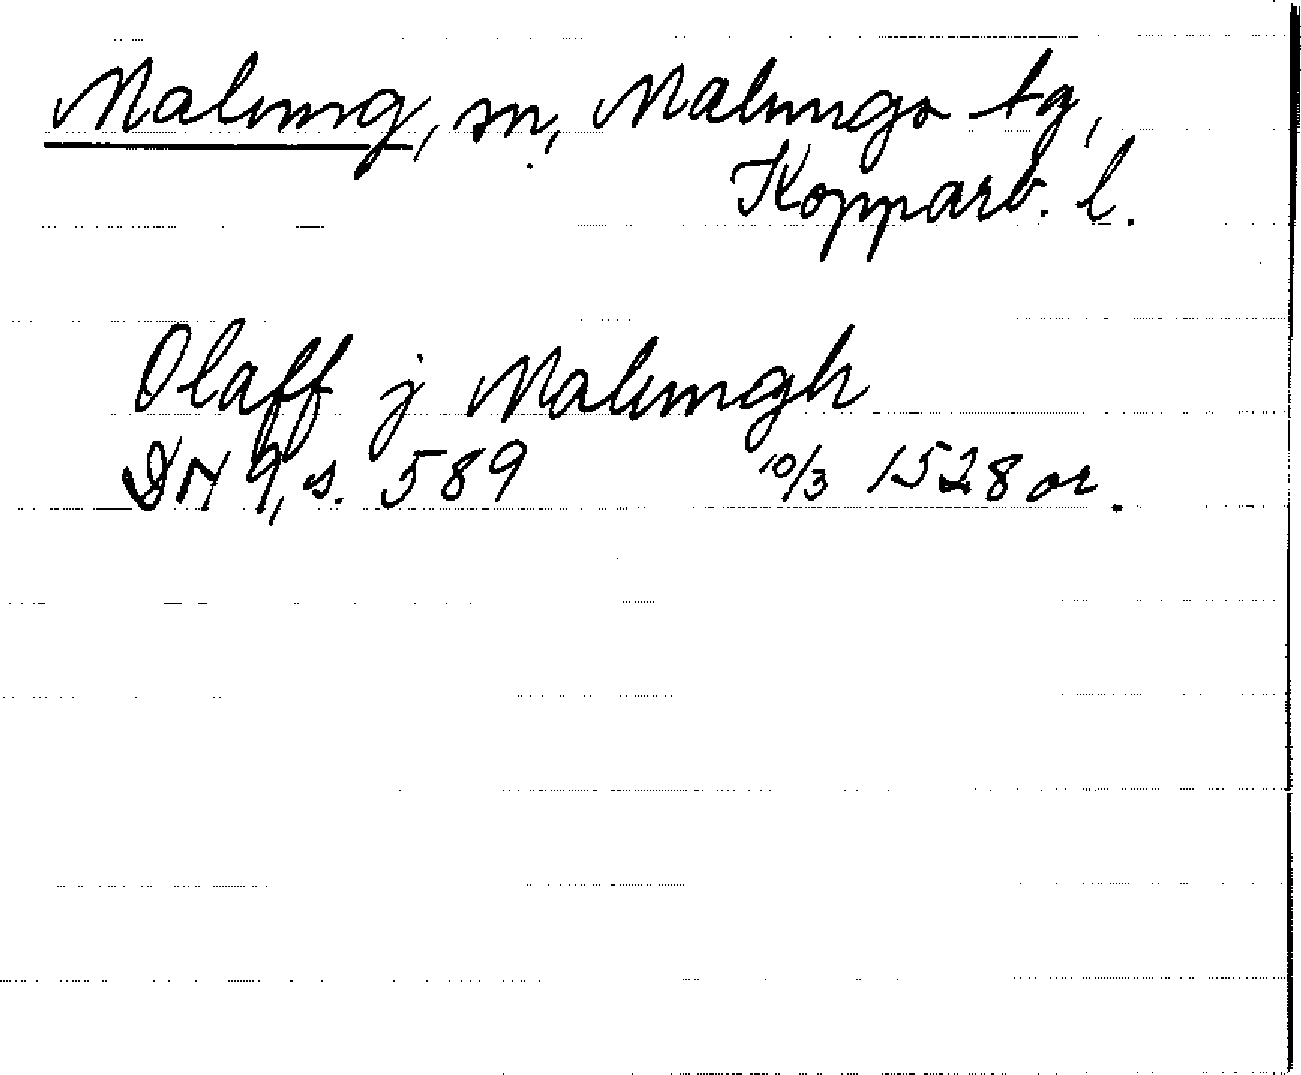 Malung, sn, Malungs tg,
Kopparb. l.
Olaff j Malungh
DN 9, s. 589 10/3 1528 or.